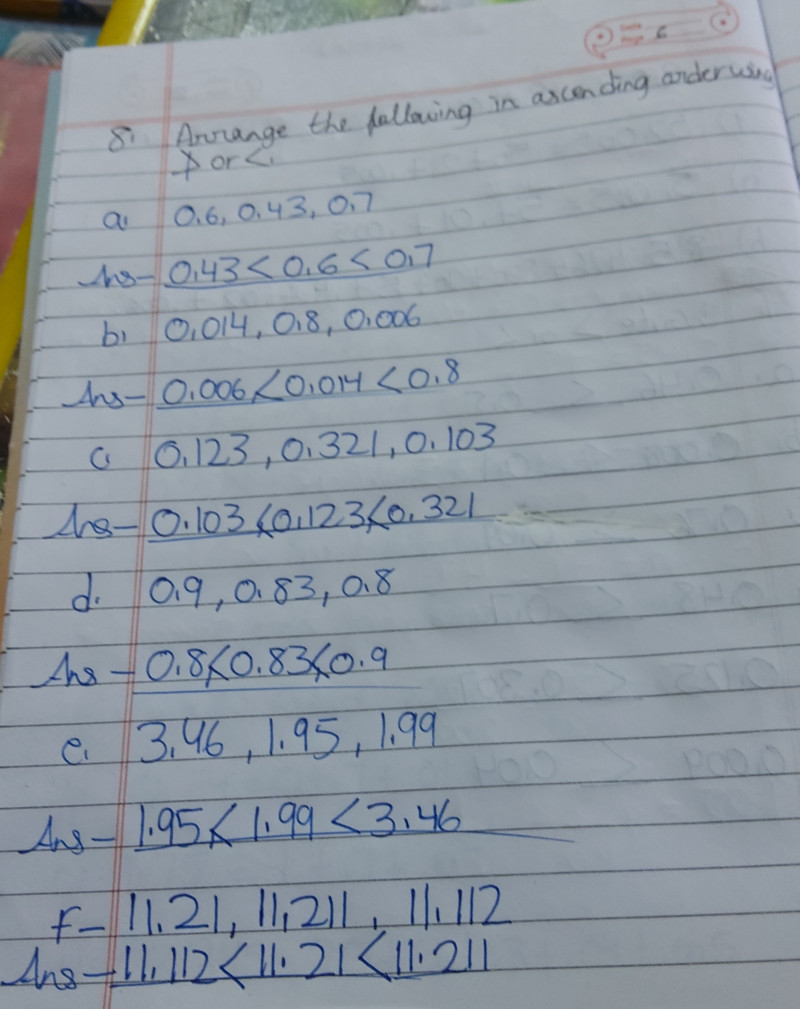 8. Arrange the following in ascending order using
> or <.
a. 0.6, 0.43, 0.7
Ans- 0.43 < 0.6 < 0.7
b. 0.014, 0.8, 0.006
Ans- 0.006 < 0.014 < 0.8
c. 0.123, 0.321, 0.103
Ans- 0.103 < 0.123 < 0.321
d. 0.9, 0.83, 0.8
Ans- 0.8 < 0.83 < 0.9
e. 3.46, 1.95, 1.99
Ans- 1.95 < 1.99 < 3.46
f- 11.21, 11.211, 11.112
Ans- 11.112 < 11.21 < 11.211